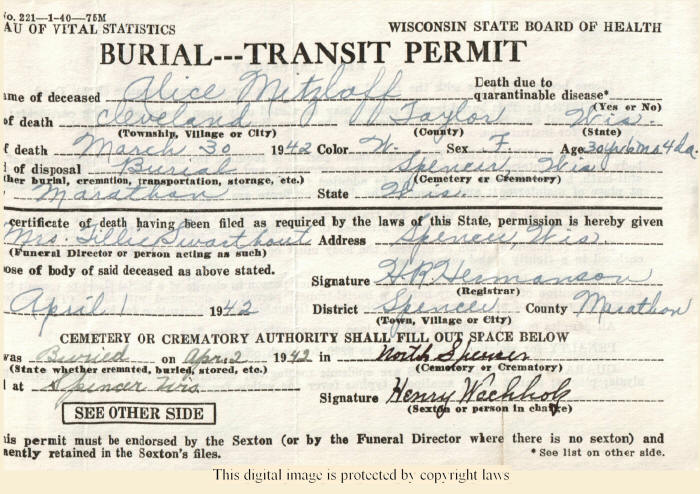 No. 221—1-40—75M
AU OF VITAL STATISTICS WISCONSIN STATE BOARD OF HEALTH
BURIAL---TRANSIT PERMIT
Death due to
ame of deceased Alice Mitzloff quarantinable disease*
(Yes or No)
of death Cleveland Taylor Wis.
(Township, Village or City) (County) (State)
f death March 30 1942 Color W. Sex F. Age 30 yrs 6 mo 4 da.
d of disposal Burial Spencer, Wis.
ther burial, cremation, transportation, storage, etc.) (Cemetery or Crematory)
Marathon State Wis.
certificate of death having been filed as required by the laws of this State, permission is hereby given
Mrs. Tillie Swarthout Address Spencer, Wis.
(Funeral Director or person acting as such)
ose of body of said deceased as above stated.
Signature H R Hermanson
(Registrar)
April 1 1942 District Spencer County Marathon
(Town, Village or City)
CEMETERY OR CREMATORY AUTHORITY SHALL FILL OUT SPACE BELOW
was Buried on Apr. 2 1942 in North Spencer
(State whether cremated, buried, stored, etc.) (Cemetery or Crematory)
d at Spencer Wis
Signature Henry Wachholz
(Sexton or person in charge)
SEE OTHER SIDE
his permit must be endorsed by the Sexton (or by the Funeral Director where there is no sexton) and
nently retained in the Sexton's files. * See list on other side.
This digital image is protected by copyright laws